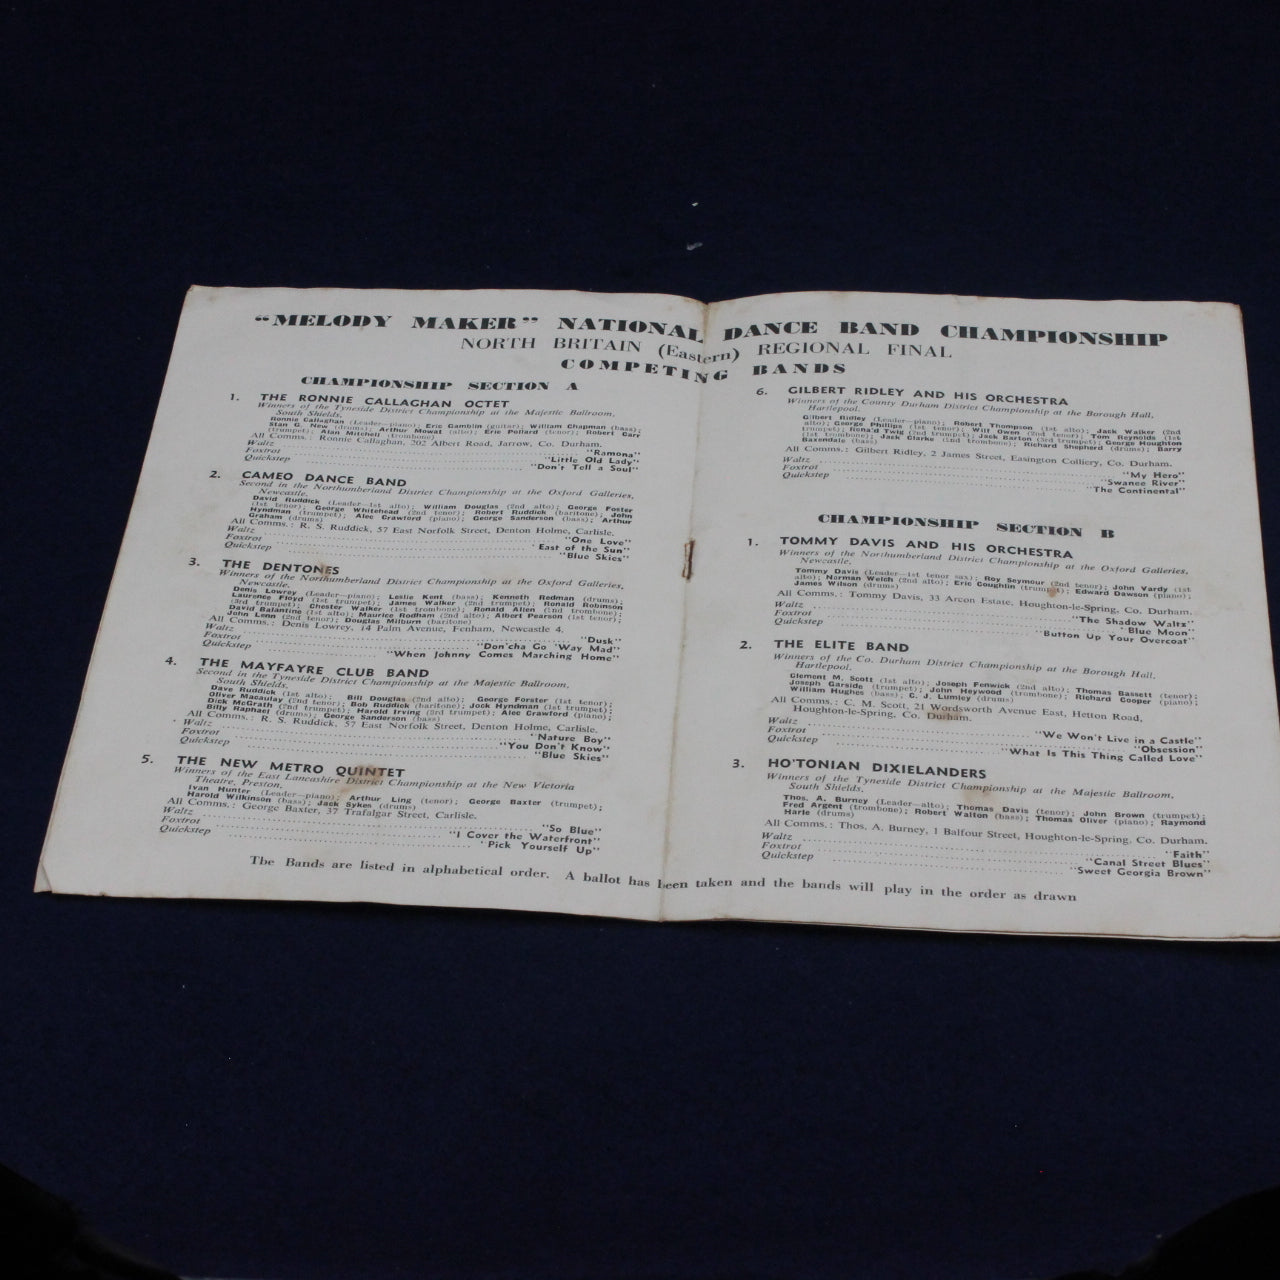 "MELODY MAKER" NATIONAL DANCE BAND CHAMPIONSHIP
NORTH BRITAIN (Eastern) REGIONAL FINAL
COMPETING BANDS
CHAMPIONSHIP SECTION A
1. THE RONNIE CALLAGHAN OCTET
Winners of the Tyneside District Championship at the Majestic Ballroom,
South Shields.
Ronnie Callaghan (Leader—piano); Eric Gamblin (guitar); William Chapman (bass);
Stan G. New (drums); Arthur Mowat (alto); Eric Pollard (tenor); Robert Carr
(trumpet); Alan Mitchell (trombone)
All Comms.: Ronnie Callaghan, 202 Albert Road, Jarrow, Co. Durham.
Waltz "Ramona"
Foxtrot "Little Old Lady"
Quickstep "Don't Tell a Soul"
2. CAMEO DANCE BAND
Second in the Northumberland District Championship at the Oxford Galleries,
Newcastle.
David Ruddick (Leader—1st alto); William Douglas (2nd alto); George Foster
(1st tenor); George Whitehead (2nd tenor); Robert Ruddick (baritone); John
Hyndman (trumpet); Alec Crawford (piano); George Sanderson (bass); Arthur
Graham (drums)
All Comms.: R. S. Ruddick, 57 East Norfolk Street, Denton Holme, Carlisle.
Waltz "One Love"
Foxtrot "East of the Sun"
Quickstep "Blue Skies"
3. THE DENTONES
Winners of the Northumberland District Championship at the Oxford Galleries,
Newcastle.
Denis Lowrey (Leader—piano); Leslie Kent (bass); Kenneth Redman (drums);
Laurence Floyd (1st trumpet); James Walker (2nd trumpet); Ronald Robinson
(3rd trumpet); Chester Walker (1st trombone); Ronald Allen (2nd trombone);
David Balantine (1st alto); Maurice Rodham (2nd alto); Albert Pearson (1st tenor);
John Lenn (2nd tenor); Douglas Milburn (baritone)
All Comms.: Denis Lowrey, 14 Palm Avenue, Fenham, Newcastle 4.
Waltz "Dusk"
Foxtrot "Don'cha Go 'Way Mad"
Quickstep "When Johnny Comes Marching Home"
4. THE MAYFAYRE CLUB BAND
Second in the Tyneside District Championship at the Majestic Ballroom,
South Shields.
Dave Ruddick (1st alto); Bill Douglas (2nd alto); George Forster (1st tenor);
Oliver Macaulay (2nd tenor); Bob Ruddick (baritone); Jock Hyndman (1st trumpet);
Dick McGrath (2nd trumpet); Harold Irving (3rd trumpet); Alec Crawford (piano);
Billy Raphael (drums); George Sanderson (bass)
All Comms.: R. S. Ruddick, 57 East Norfolk Street, Denton Holme, Carlisle.
Waltz "Nature Boy"
Foxtrot "You Don't Know"
Quickstep "Blue Skies"
5. THE NEW METRO QUINTET
Winners of the East Lancashire District Championship at the New Victoria
Theatre, Preston.
Ivan Hunter (Leader—piano); Arthur Ling (tenor); George Baxter (trumpet);
Harold Wilkinson (bass); Jack Sykes (drums)
All Comms.: George Baxter, 37 Trafalgar Street, Carlisle.
Waltz "So Blue"
Foxtrot "I Cover the Waterfront"
Quickstep "Pick Yourself Up"
6. GILBERT RIDLEY AND HIS ORCHESTRA
Winners of the County Durham District Championship at the Borough Hall,
Hartlepool.
Gilbert Ridley (Leader—piano); Robert Thompson (1st alto); Jack Walker (2nd
alto); George Phillips (1st tenor); Will Owen (2nd tenor); Tom Reynolds (1st
trumpet); Rena'd Twig (2nd trumpet); Jack Barton (3rd trumpet); George Houghton
(1st trombone); Jack Clarke (2nd trombone); Richard Shepherd (drums); Barry
Baxendale (bass)
All Comms.: Gilbert Ridley, 2 James Street, Easington Colliery, Co. Durham.
Waltz "My Hero"
Foxtrot "Swanee River"
Quickstep "The Continental"
CHAMPIONSHIP SECTION B
1. TOMMY DAVIS AND HIS ORCHESTRA
Winners of the Northumberland District Championship at the Oxford Galleries,
Newcastle.
Tommy Davis (Leader—1st tenor sax); Roy Seymour (2nd tenor); John Vardy (1st
alto); Norman Welch (2nd alto); Eric Coughlin (trumpet); Edward Dawson (piano);
James Wilson (drums)
All Comms.: Tommy Davis, 33 Arcon Estate, Houghton-le-Spring, Co. Durham.
Waltz "The Shadow Waltz"
Foxtrot "Blue Moon"
Quickstep "Button Up Your Overcoat"
2. THE ELITE BAND
Winners of the Co. Durham District Championship at the Borough Hall,
Hartlepool.
Clement M. Scott (1st alto); Joseph Fenwick (2nd alto); Thomas Bassett (tenor);
Joseph Garside (trumpet); John Heywood (trombone); Richard Cooper (piano);
William Hughes (bass); C. J. Lumley (drums)
All Comms.: C. M. Scott, 21 Wordsworth Avenue East, Hetton Road,
Houghton-le-Spring, Co. Durham.
Waltz "We Won't Live in a Castle"
Foxtrot "Obsession"
Quickstep "What Is This Thing Called Love"
3. HO'TONIAN DIXIELANDERS
Winners of the Tyneside District Championship at the Majestic Ballroom,
South Shields.
Thos. A. Burney (Leader—alto); Thomas Davis (tenor); John Brown (trumpet);
Fred Argent (trombone); Robert Walton (bass); Thomas Oliver (piano); Raymond
Harle (drums)
All Comms.: Thos. A. Burney, 1 Balfour Street, Houghton-le-Spring, Co. Durham.
Waltz "Faith"
Foxtrot "Canal Street Blues"
Quickstep "Sweet Georgia Brown"
The Bands are listed in alphabetical order. A ballot has been taken and the bands will play in the order as drawn